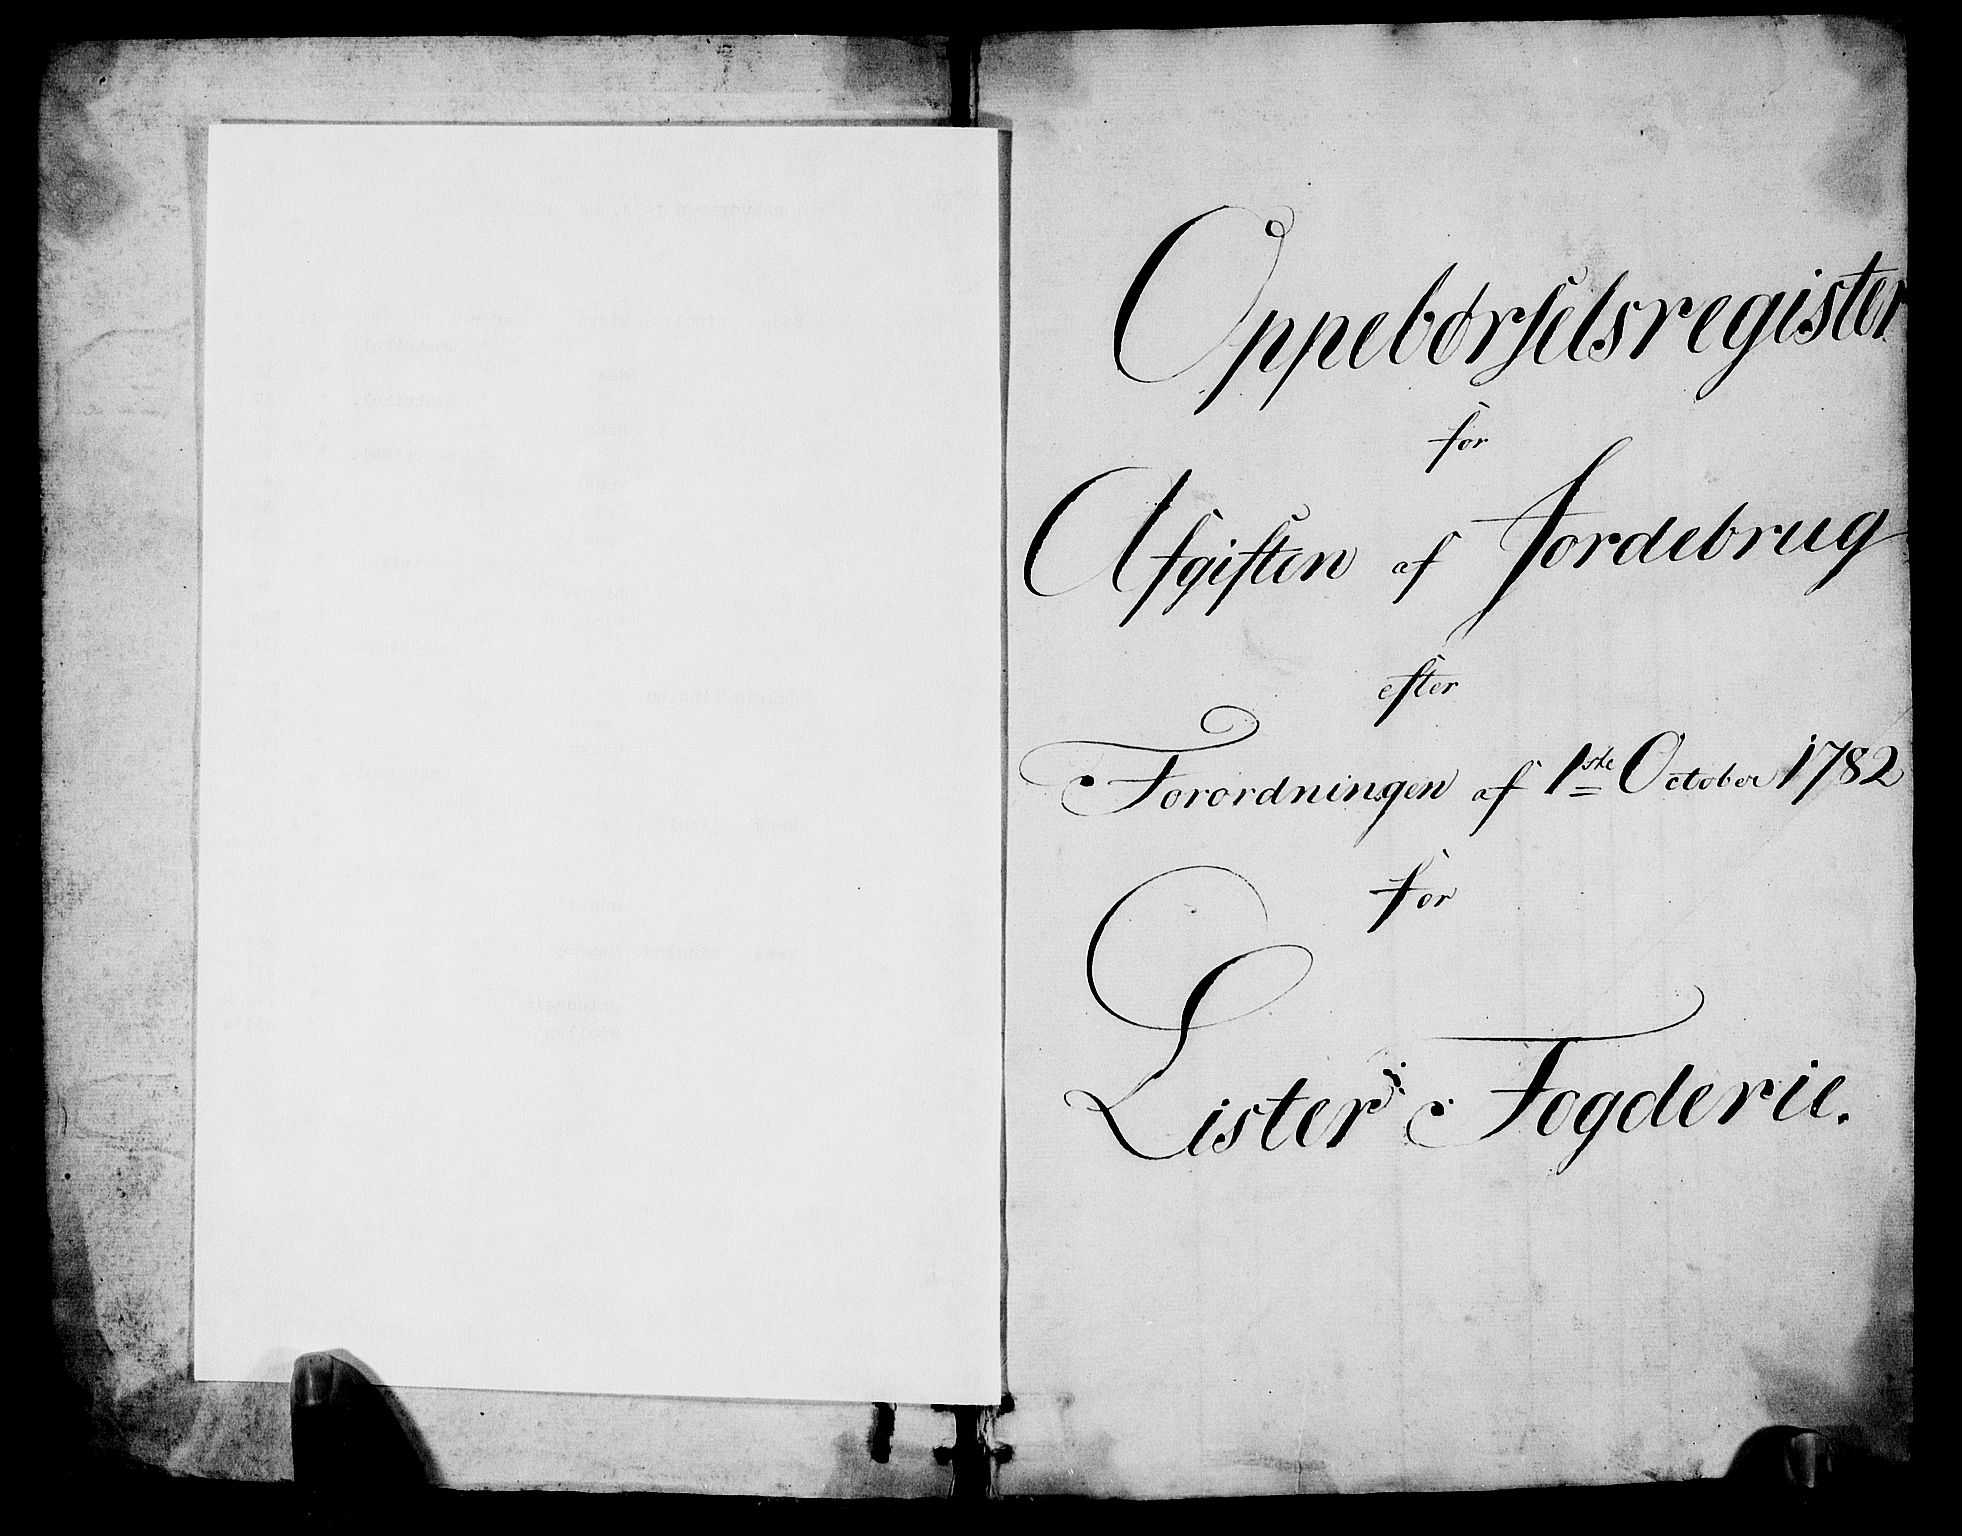 Oppebørselsregister
for
Afgiften af Jordebrug
efter
Forordningen af 1ste October 1782
for
Lister Fogderie.